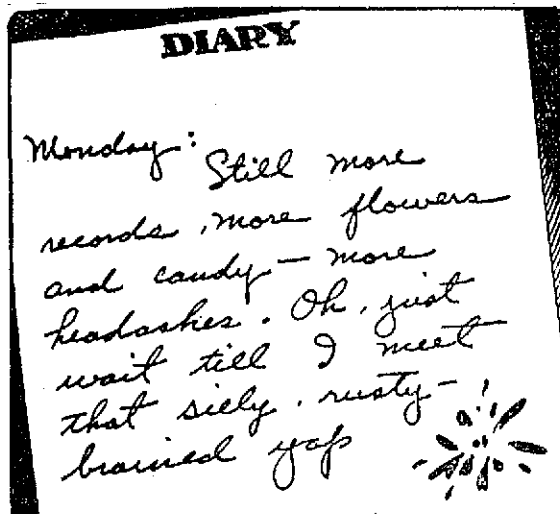 DIARY
Monday:
Still more
records, more flowers
and candy — more
headashes. Oh, just
wait till I meet
that silly, rusty-
brained yap